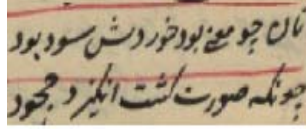 نان چو معنی بود خوردش سود بود
چونکه صورت گشت انگیزد جحود